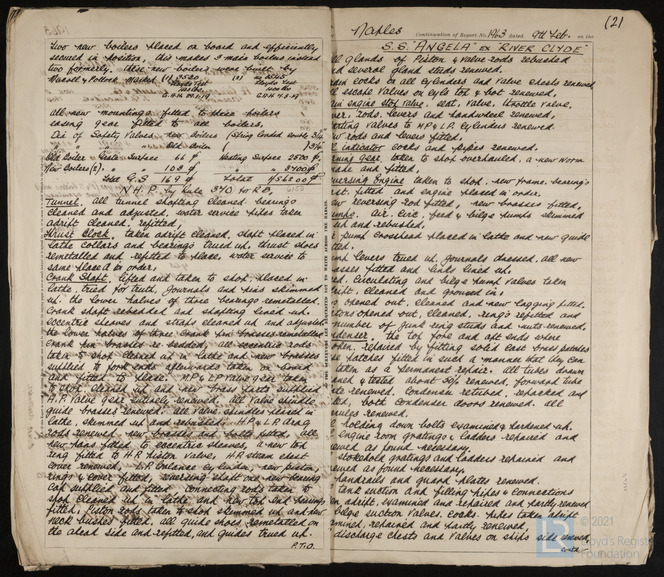 Two new boilers placed on board and efficiently
secured in position, this makes 3 main boilers instead
two formerly. These new boilers were built by
all new mountings fitted to these boilers
casing gear fitted to all boilers,
Dia of Safety Valves new boilers (Spring Loaded double 3½"
Old Boiler
Old Boiler Grate Surface 66 Heating Surface 2500
New Boilers (2) " 103 "
Total G.S. 169 Total
N.H.P. by Rule 340 to RD,
Tunnel. all tunnel shafting cleaned. bearings
cleaned and adjusted, water service pipes taken
adrift cleaned, refitted,
Thrust Block, taken adrift cleaned, shaft placed in
lathe collars and bearings trued up, thrust shoes
remetalled and refitted to place, water service to
same placed in order,
Crank Shaft, lifted and taken to shop, placed in
lathe tried for truth, journals and pins skimmed
up. the lower halves of three bearings remetalled.
Crank shaft rebedded and shafting lined up.
eccentric sheaves and straps cleaned up and adjusted
the lower halves of three crank pin brasses remetalled
Crank pin brasses re-bedded, all eccentric rods
taken to shop cleaned up in lathe and new brasses
supplied to fork ends afterwards taken on board
and fitted to place. HP & LP valve gear taken
to shop adjusted and new brass parts supplied
H.P. Valve gear entirely renewed. all valve spindle
guide brasses renewed. all valve spindles placed in
lathe, skimmed up and rebushed. H.P. & L.P. drag
rods renewed, new brasses and bolts fitted. all
new pins fitted to eccentric sheaves. a new
ring fitted to H.P. piston valve, H.P. steam chest
cover renewed, L.P. balance cylinder, new piston,
rings & cover fitted, weighing shaft one new bearing
cap supplied and fitted. connecting rods taken to
shop cleaned up in lathe and new top end brasses
fitted, piston rods taken to shop skimmed up and new
neck bushes fitted, all guide shoes remetalled on
the ahead side and refitted, and guides trued up.
P.T.O.
(2)
Naples
Continuation of Report No. 1963 dated 9th Feb. on the
S.S. "ANGELA" ex "RIVER CLYDE"
glands of Piston & valve rods rebushed
and several gland studs renewed.
cocks on all cylinders and valve chests renewed
escape valves on cyls top & bot renewed
engine stop valve, seat, valve, throttle valve,
rods, levers and handwheel renewed,
starting valves to HP & LP cylinders renewed
rods and levers fitted,
indicator cocks and pipes renewed.
turning gear taken to shop overhauled, a new worm
made and fitted,
reversing Engine taken to shop. new frame, bearings
fitted and engine placed in order,
reversing rod fitted, new brasses fitted,
air, circ, feed & bilge pumps skimmed
up and rebushed,
Pump crosshead placed in lathe and new guide
pump levers trued up, journals dressed, all new
brasses fitted and links lined up.
Circulating and bilge pump valves taken
adrift. cleaned and ground in.
opened out, cleaned and new lagging fitted.
opened out, cleaned, rings refitted and
number of junk ring studs and nuts renewed,
condenser, the top fore and aft ends where
repaired by fitting solid cast brass patches
patches fitted in such a manner that they can
taken as a permanent repair. All tubes drawn
and tested about 50% renewed, forward tube
plate renewed. Condenser retubed, repacked and
tested, both condenser doors renewed. all
renewed.
holding down bolts examined & hardened up.
Engine room gratings & ladders repaired and
renewed as found necessary.
stokehold gratings and ladders repaired and
renewed as found necessary,
handrails and guard plates renewed.
tank suction and filling pipes & connections
adrift, examined and repaired and partly renewed
bilge suction valves. cocks. pipes taken adrift
examined, repaired and partly renewed,
discharge chests and valves on ships side
© 2021
Lloyd's Register
Foundation